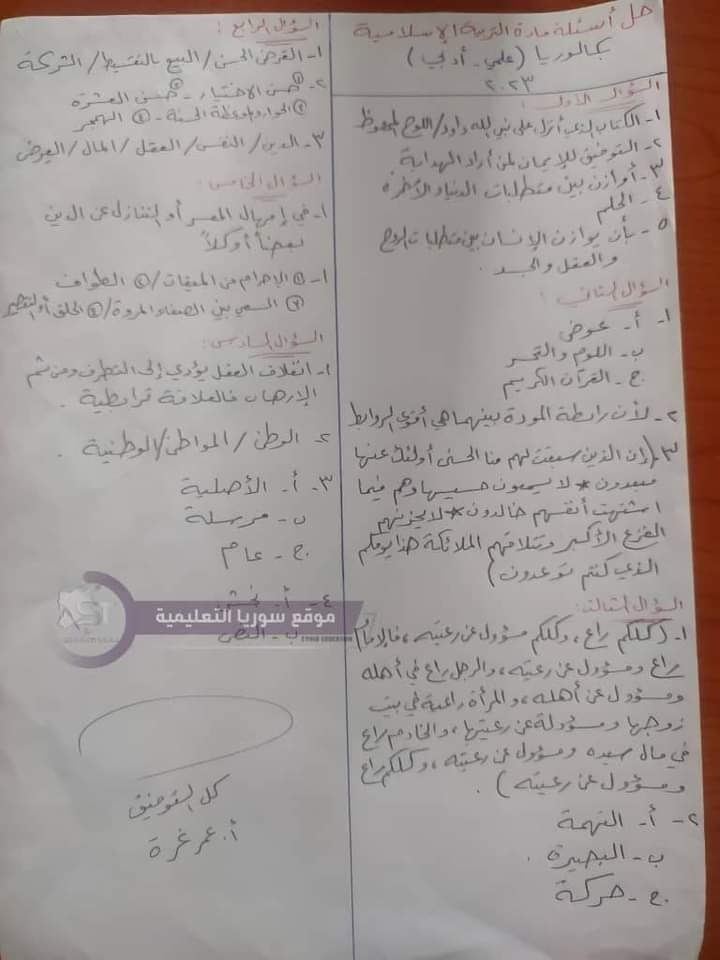 حل أسئلة مادة التربية الإسلامية
بكالوريا (علمي - أدبي)
٢٠٢٣
السؤال الأول:
١- الكتاب الذي أنزل على نبي الله داود/اللوح المحفوظ
٢- التوفيق للإيمان لمن أراد الهداية
٣- أوازن بين متطلبات الدنيا والآخرة
٤- الحلم
٥- بأن يوازن الإنسان بين متطلبات الروح
والعقل والجسد.
السؤال الثاني:
١- أ- عوض
ب- اللوم والتحسر
ج- القرآن الكريم
٢- لأن رابطة المودة بينهما هي أقوى الروابط
٣- (إن الذين سبقت لهم منا الحسنى أولئك عنها
مبعدون * لا يسمعون حسيسها وهم فيما
اشتهت أنفسهم خالدون * لا يحزنهم
الفزع الأكبر وتتلاقهم الملائكة هذا يومكم
الذي كنتم توعدون)
السؤال الثالث:
١- (كلكم راع، وكلكم مسؤول عن رعيته، فالإمام
راع ومسؤول عن رعيته، والرجل راع في أهله
ومسؤول عن أهله، والمرأة راعية في بيت
زوجها ومسؤولة عن رعيتها، والخادم راع
في مال سيده ومسؤول عن رعيته، وكلكم راع
ومسؤول عن رعيته).
٢- أ- التهمة
ب- البصيرة.
ج- حركة
السؤال الرابع:
١- القرض الحسن/ البيع بالتقسيط/ الشركة
٢- ① حسن الاختيار - ② حسن العشرة
③ الحوار والموعظة الحسنة - ④ الهجر
٣- الدين/ النفس/ العقل/ المال/ العرض
السؤال الخامس:
١- في إمهال المعسر أو التنازل عن الدين
بعضاً أو كلاً
١- ① الإحرام من الميقات/ ② الطواف
③ السعي بين الصفا والمروة/ ④ الحلق أو التقصير
السؤال السادس:
١- انغلاق العقل يؤدي إلى التطرف ومن ثم
الإرهاب فالعلاقة ترابطية.
٢- الوطن/ المواطن/ الوطنية.
٣- أ- الأصلية
ب- مرسلة
ج- عام
٤- أ-
ب- النص
موقع سوريا التعليمية
SYRIA EDUCATION
كل التوفيق
أ. عمر غرة